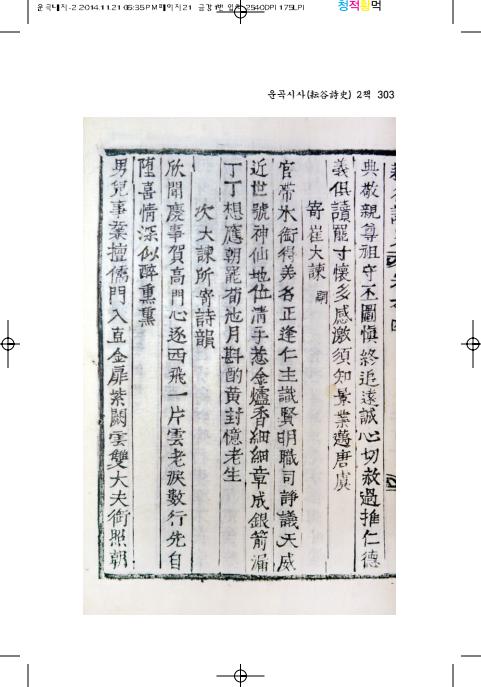 운곡시사-2 2014.11.21 05:35 PM 페이지21
2540DPI 175LPI
청적황먹
운곡시사(耘谷詩史) 2책 303
典敬親尊祖守丕圖愼終追遠誠心切赦過推仁德
義俱讀罷寸懷多感激須知景業邁唐虞
寄崔大諫
官帶氷銜得美名正逢仁主識賢明職司諍議天威
近世號神仙地位淸手惹金爐香細細章成銀箭漏
丁丁想應朝罷荀池月斟酌黃封憶老生
次大諫所寄詩韻
欣聞慶事賀高門心逐西飛一片雲老淚數行先自
墮喜情深似醉熏熏
男兒事業擅儒門入直金扉紫闕雲雙大夫銜照朝